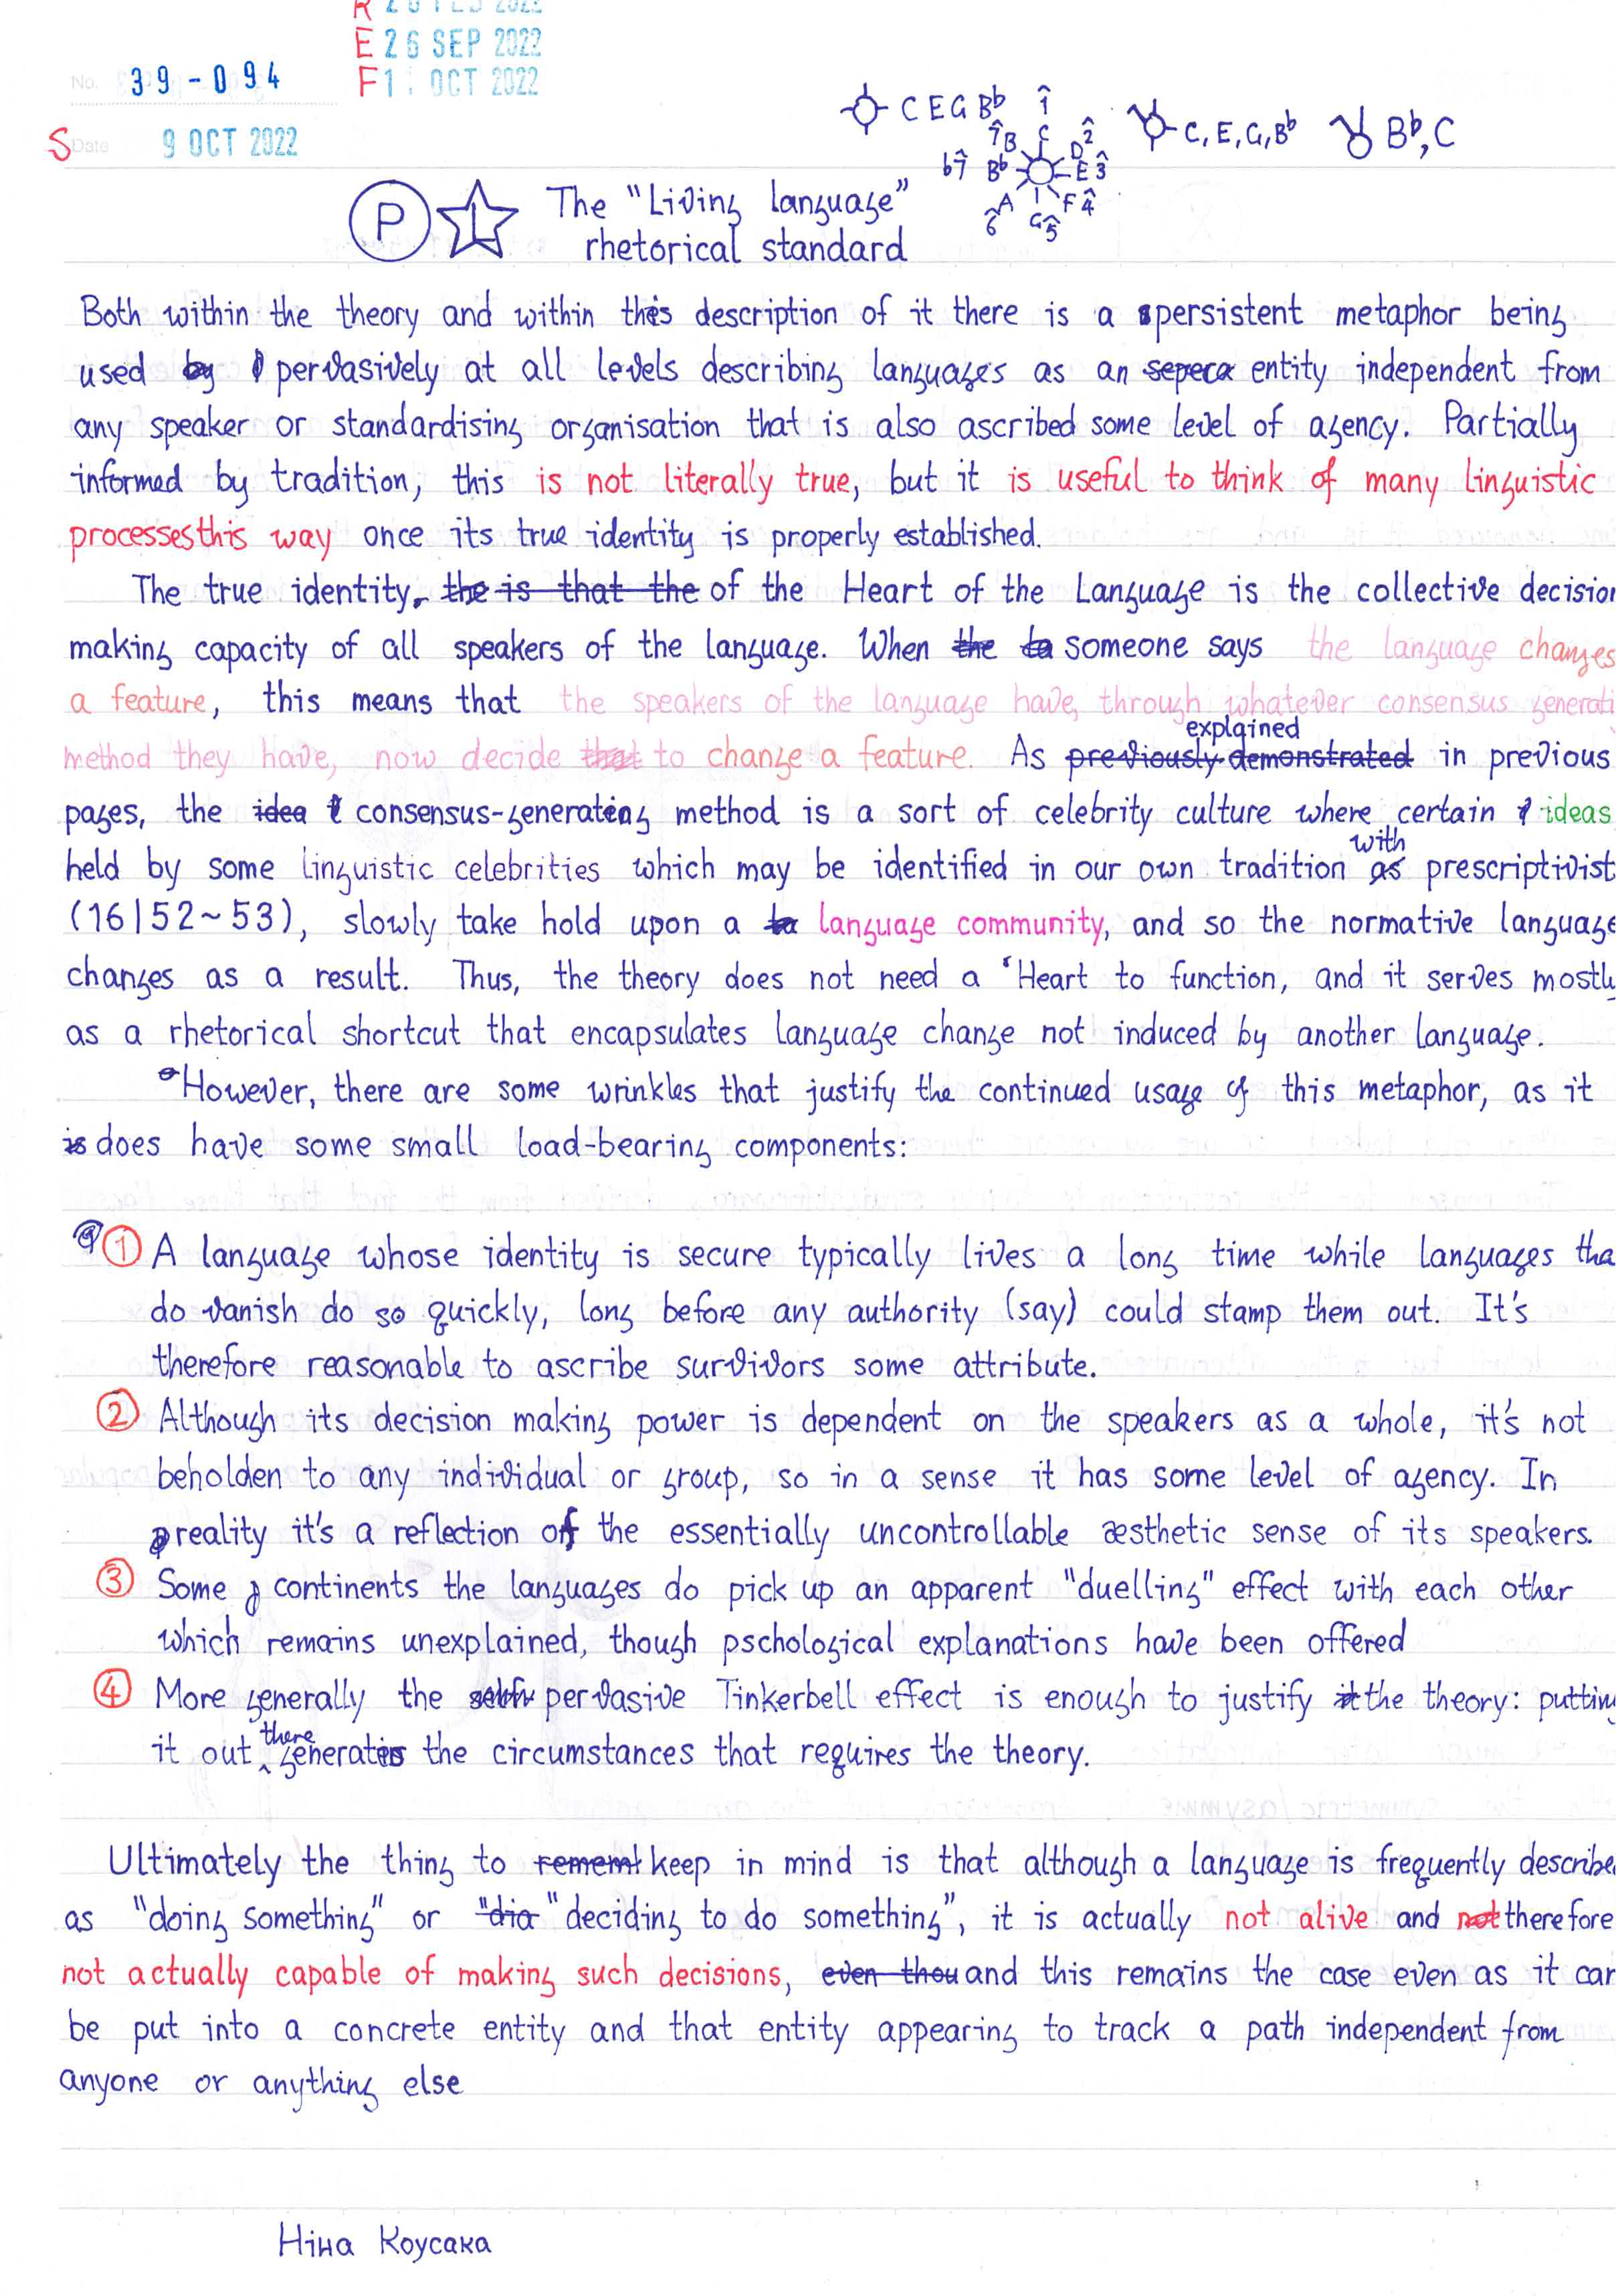 R 26 FEB 2022
E 26 SEP 2022
F 1 OCT 2022
No. 39-094
S Date 9 OCT 2022
C E G B♭
C, E, G, B♭
B♭, C
1̂ C
2̂ D
3̂ E
4̂ F
5̂ G
6̂ A
♭7̂ B♭
7̂ B
P L The "Living language"
rhetorical standard
Both within the theory and within this description of it there is a persistent metaphor being
used by pervasively at all levels describing languages as an sepeca entity independent from
any speaker or standardising organisation that is also ascribed some level of agency. Partially
informed by tradition, this is not literally true, but it is useful to think of many linguistic
processes this way once its true identity is properly established.
The true identity, the is that the of the Heart of the Language is the collective decision
making capacity of all speakers of the language. When the ta someone says the language changes
a feature, this means that the speakers of the language have, through whatever consensus generati
method they have, now decide that to change a feature. As previously demonstrated explained in previous
pages, the idea consensus-generating method is a sort of celebrity culture where certain ideas
held by some linguistic celebrities which may be identified in our own tradition as with prescriptivist
(16|52~53), slowly take hold upon a ta language community, and so the normative language
changes as a result. Thus, the theory does not need a 'Heart to function, and it serves mostly
as a rhetorical shortcut that encapsulates language change not induced by another language.
However, there are some wrinkles that justify the continued usage of this metaphor, as it
is does have some small load-bearing components:
① A language whose identity is secure typically lives a long time while languages tha
do vanish do so quickly, long before any authority (say) could stamp them out. It's
therefore reasonable to ascribe survivors some attribute.
② Although its decision making power is dependent on the speakers as a whole, it's not
beholden to any individual or group, so in a sense it has some level of agency. In
reality it's a reflection of the essentially uncontrollable æsthetic sense of its speakers.
③ Some continents the languages do pick up an apparent "duelling" effect with each other
which remains unexplained, though pschological explanations have been offered
④ More generally the pervasive Tinkerbell effect is enough to justify it the theory: putting
it out there generates the circumstances that requires the theory.
Ultimately the thing to rememt keep in mind is that although a language is frequently describe
as "doing something" or "dia" "deciding to do something", it is actually not alive and not therefore
not actually capable of making such decisions, even thou and this remains the case even as it can
be put into a concrete entity and that entity appearing to track a path independent from
anyone or anything else
Ніна Коусака